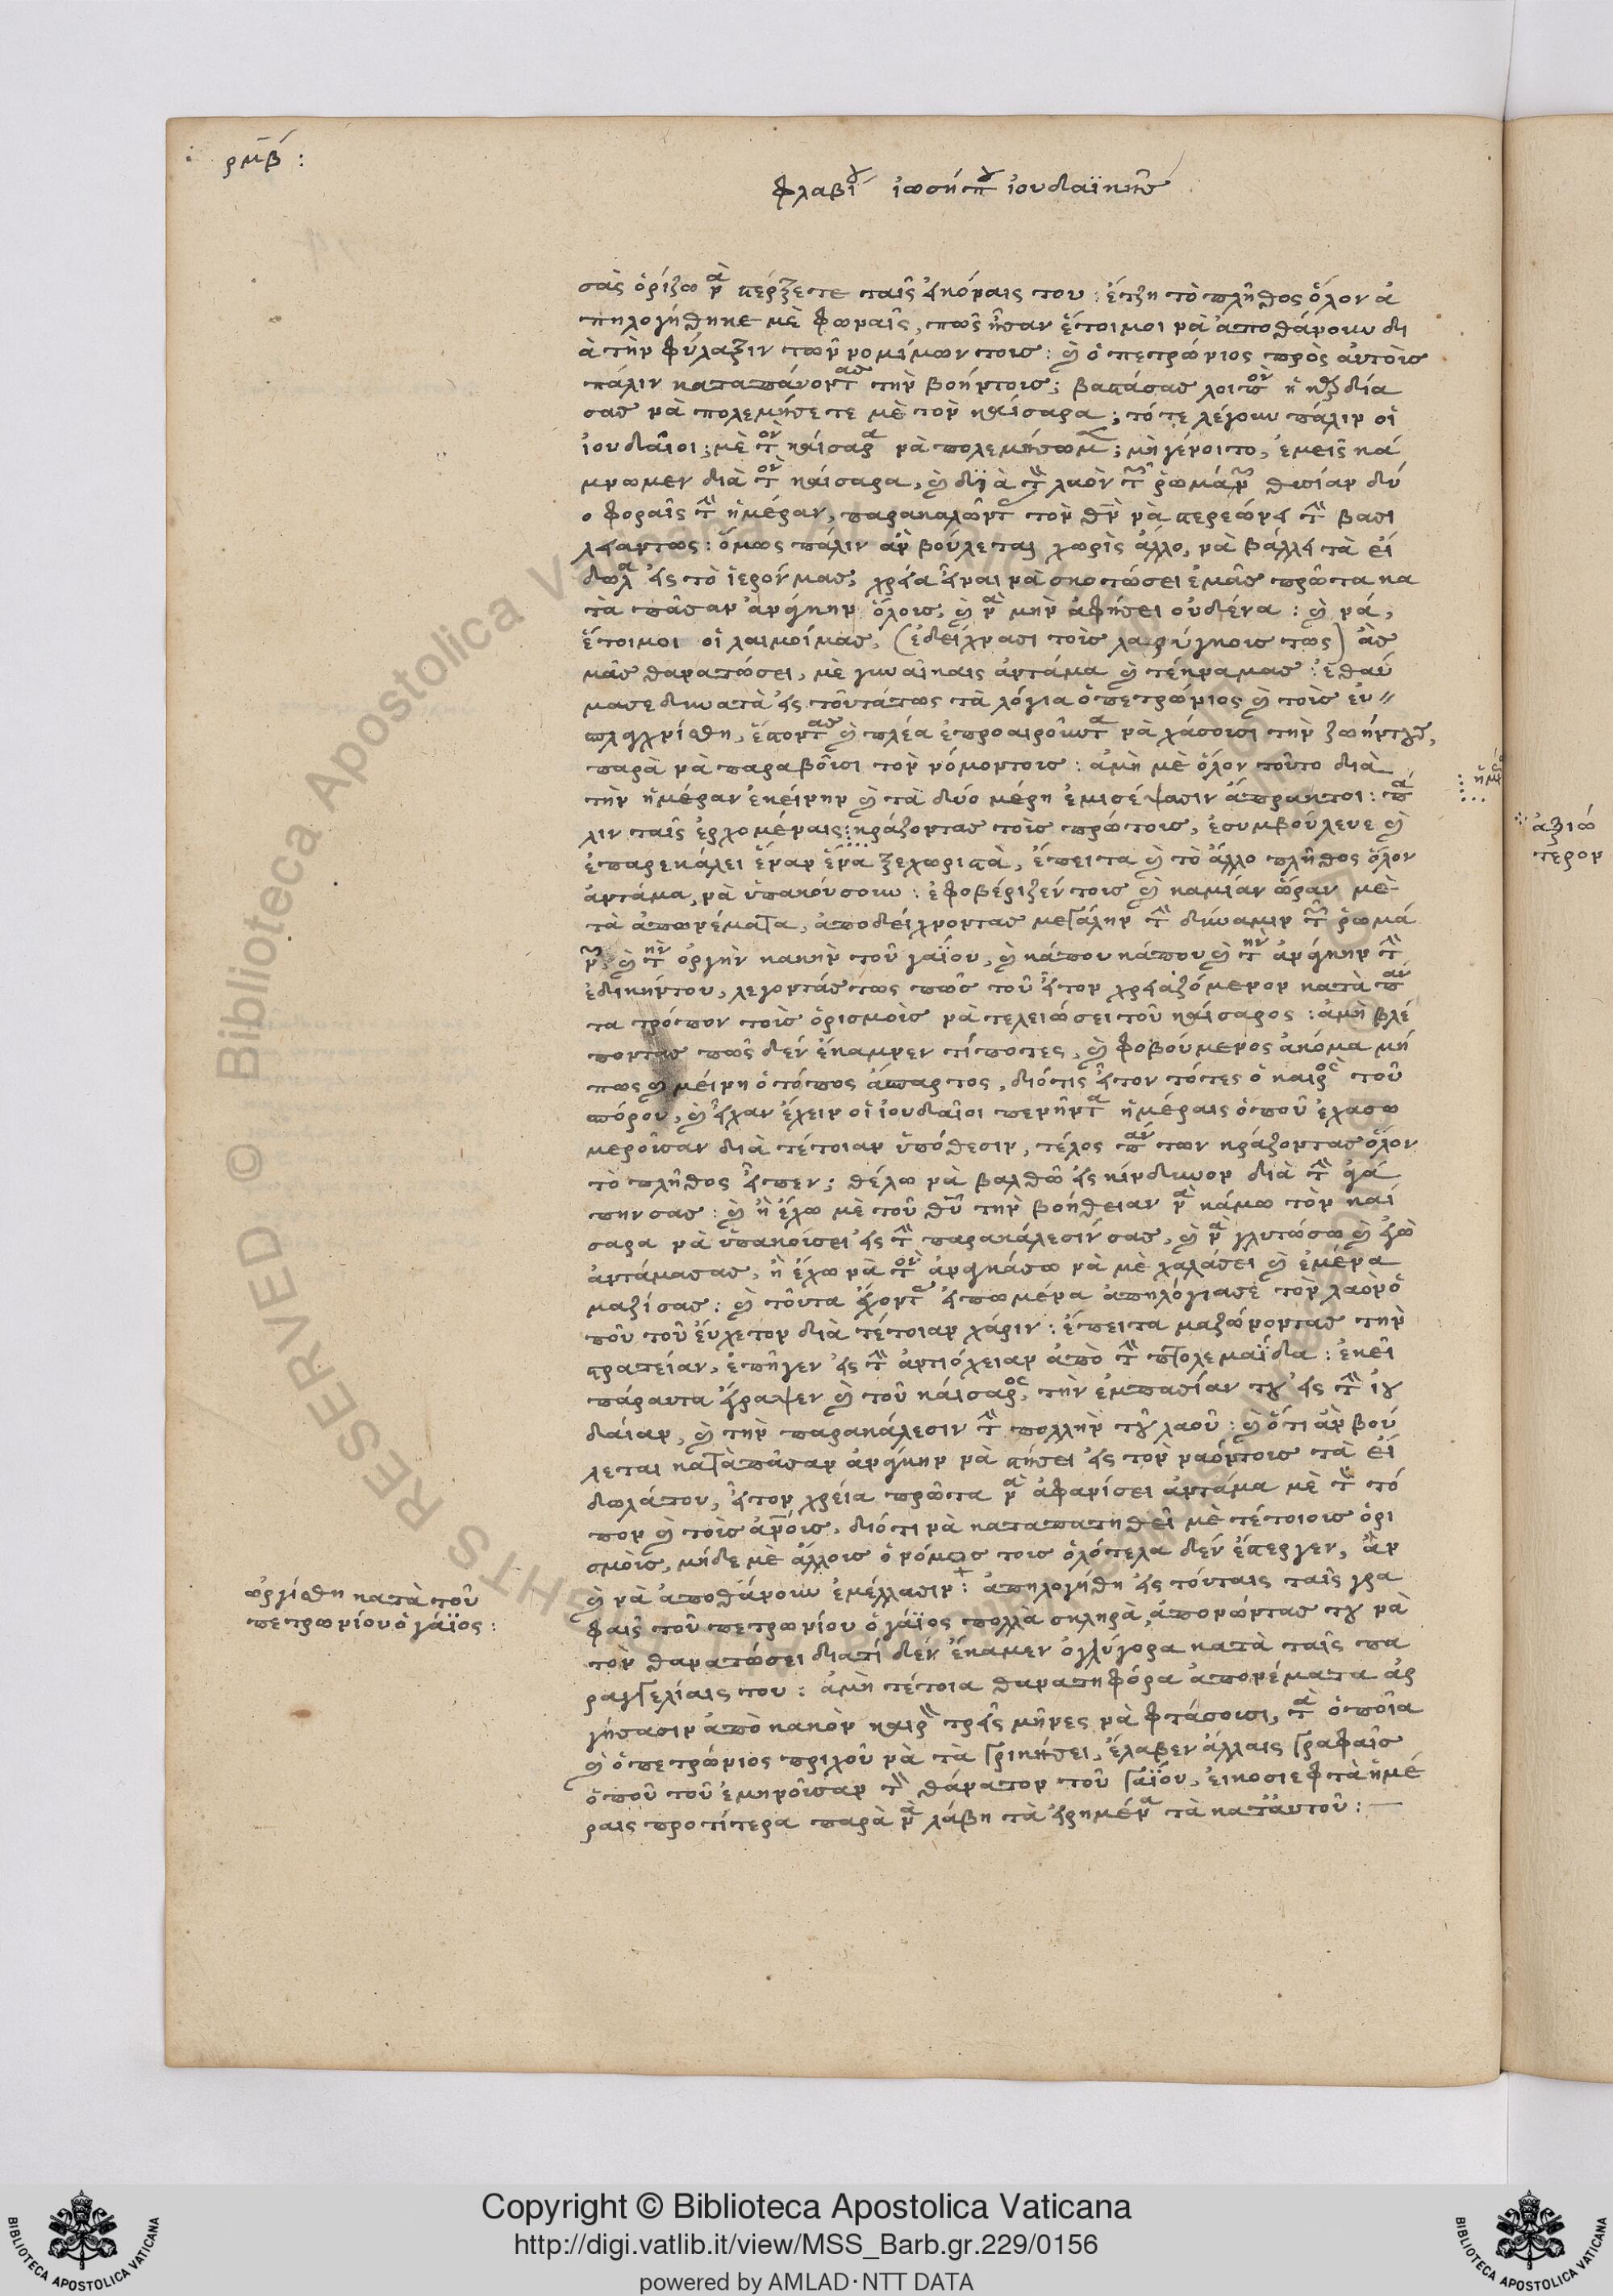 ρμβ :
Φλαβίου ἰωσήπου ἰουδαϊκῆς
σὰς ὁρίζω νὰ στέρξετε ταῖς εἰκόναις του : ἔτζη τὸ πλῆθος ὅλον ἀ
πηλογήθηκε μὲ φωναῖς, πῶς ἦσαν ἕτοιμοι νὰ ἀποθάνουν δι
ὰ τὴν φύλαξιν τῶν νομίμων τοις : καὶ ὁ πετρώνιος πρὸς αὐτοὶς
πάλιν καταπάνοντας τὴν βοήντοις ; βαστάσας λοιπὸν ἡ καρδία
σας νὰ πολεμήσετε μὲ τὸν καίσαρα ; τότε λέγουν πάλιν οἱ
ἰουδαῖοι ; μὲ τὸν καίσαρα νὰ πολεμήσωμεν ; μὴ γένοιτο, ἐμεῖς κά
μνωμεν διὰ τὸν καίσαρα, καὶ διὰ τὸν λαὸν τῶν ῥωμάνων θυσίαν δύ
ο φοραῖς τὴν ἡμέραν, παρακαλῶντα τὸν θν νὰ στερεώνει τὴν βασι
λείαντως : ὅμως πάλιν ἂν βούλεται χωρὶς ἄλλο, νὰ βάλλει τὰ εἴ
δωλα εἰς τὸ ἱερόν μας, χρεία εἶναι νὰ σκοτώσει ἐμᾶς πρῶτα κα
τὰ πᾶσαν ἀνάγκην ὅλοις, καὶ νὰ μὴν ἀφήσει οὐδένα : καὶ νά,
ἕτοιμοι οἱ λαιμοίμας, (ἐδείχνασι τοὶς λαρύγκοις τως) ἂς
μᾶς θανατώσει, μὲ γυναίκαις ἀντάμα καὶ τέκναμας : ἐθαύ
μασε δυνατὰ εἰς τοῦτάτως τὰ λόγια ὁ πετρώνιος καὶ τοὶς ἐν〃
πλαχνίσθη, ἔστοντας καὶ πλέα ἐπροαιροῦντα νὰ χάσοισι τὴν ζωήντους,
παρὰ νὰ παραβοῖσι τὸν νόμοντοις : ἀμὴ μὲ ὅλον τοῦτο διὰ
τὴν ἡμέραν ἐκείνην καὶ τὰ δύο μέρη ἐμισέψασιν ἄπρακτοι : πά
λιν ταῖς ἐρχομέναις : κράζοντας τοὶς πρώτοις, ἐσυμβούλευε καὶ
ἐπαρεκάλει ἕναν ἕνα ξεχωριστὰ, ἔπειτα καὶ τὸ ἄλλο πλῆθος ὅλον
ἀντάμα, νὰ ὑπακούσουν : ἐφοβέριζέν τοις καὶ καμίαν ὥραν μὲ
τὰ ἀπονέματα, ἀποδείχνοντας μεγάλην τὴν δύναμιν τῶν ῥωμά
νων, καὶ τὴν ὀργὴν κακὴν τοῦ γαΐου, καὶ κάπου κάπου καὶ τὴν ἀνάγκην τὴν
ἐδικήντου, λέγοντάς τως πῶς τοῦ εἶτον χρειαζόμενον κατὰ πάν
τα τρόπον τοὶς ὁρισμοὶς νὰ τελειώσει τοῦ καίσαρος : ἀμὴ βλέ
ποντας πῶς δὲν ἔκαμνεν τίποτες, καὶ φοβούμενος ἀκόμα μή
πως καὶ μείνη ὁ τόπος ἄσπαρτος, διότις εἶτον τότες ὁ καιρὸς τοῦ
σπόρου, καὶ εἶχαν ἔχειν οἱ ἰουδαῖοι πενῆντα ἡμέραις ὁποῦ ἐχασω
μεροῦσαν διὰ τέτοιαν ὑπόθεσιν, τέλος πάντων κράζοντας ὅλον
τὸ πλῆθος εἶπεν ; θέλω νὰ βαλθῶ εἰς κίνδυνον διὰ τὴν ἀγά
πην σας : καὶ ἢ ἔχω μὲ τοῦ θυ τὴν βοήθειαν νὰ κάμω τὸν καί
σαρα νὰ ὑπακούσει εἰς τὴν παρακάλεσίν σας, καὶ νὰ γλυτώσω καὶ ἐγὼ
ἀντάμασας, ἢ ἔχω νὰ τὸν ἀναγκάσω νὰ μὲ χαλάσει καὶ ἐμένα
μαζίσας : καὶ τοῦτα ἔχοντα εἰπωμένα ἀπηλόγιασε τὸν λαὸν ὁ
ποῦ τοῦ εὔχετον διὰ τέτοιαν χάριν : ἔπειτα μαζώνοντας τὴν
στρατείαν, ἐπῆγεν εἰς τὴν ἀντιόχειαν ἀπὸ τὴν πτολεμαΐδα : ἐκεῖ
πάραυτα ἔγραψεν καὶ τοῦ καίσαρος, τὴν ἐμπασίαν του εἰς τὴν ἰου
δαίαν, καὶ τὴν παρακάλεσιν τὴν πολλὴν τοῦ λαοῦ : καὶ ὅτι ἂν βού
λεται κατὰ πᾶσαν ἀνάγκην νὰ στήσει εἰς τὸν ναόντοις τὰ εἴ
δωλάτου, εἶτον χρεία πρῶτα νὰ ἀφανίσει ἀντάμα μὲ τὸν τό
πον καὶ τοὶς ἀνοις, διότι νὰ καταπατηθεῖ μὲ τέτοιοις ὁρι
σμοὶς, μήδε μὲ ἄλλοις ὁ νόμος τοις ὁλότελα δὲν ἔστεργεν, ἂν
καὶ νὰ ἀποθάνουν ἐμέλλασιν : ἀπηλογήθη εἰς τούταις ταῖς γρα
φαῖς τοῦ πετρωνίου ὁ γάϊος πολλὰ σκληρὰ, ἀπονώντας του νὰ
τὸν θανατώσει διατί δὲν ἔκαμεν ὀγλύγορα κατὰ ταῖς πα
ραγγελίαις του : ἀμὴ τέτοια θανατηφόρα ἀπονέματα ἀρ
γήσασιν ἀπὸ κακὸν καιρὸν τρεῖς μῆνες νὰ φτάσοισι, τὰ ὁποῖα
καὶ ὁ πετρώνιος πριχοῦ νὰ τὰ γρικήσει, ἔλαβεν ἄλλαις γραφαῖς
ὁποῦ τοῦ ἐμηνοῦσαν τὸν θάνατον τοῦ γαΐου, εἰκοσιεφτὰ ἡμέ
ραις προτίτερα παρὰ νὰ λάβη τὰ εἰρημένα τὰ κατ᾽αὐτοῦ : —
ὠργίσθη κατὰ τοῦ
πετρωνίου ὁ γάϊος :
ἀξιώ
τερον
Copyright © Biblioteca Apostolica Vaticana
http://digi.vatlib.it/view/MSS_Barb.gr.229/0156
powered by AMLAD·NTT DATA
BIBLIOTECA APOSTOLICA VATICANA
BIBLIOTECA APOSTOLICA VATICANA
ALL RIGHTS RESERVED © Biblioteca Apostolica Vaticana